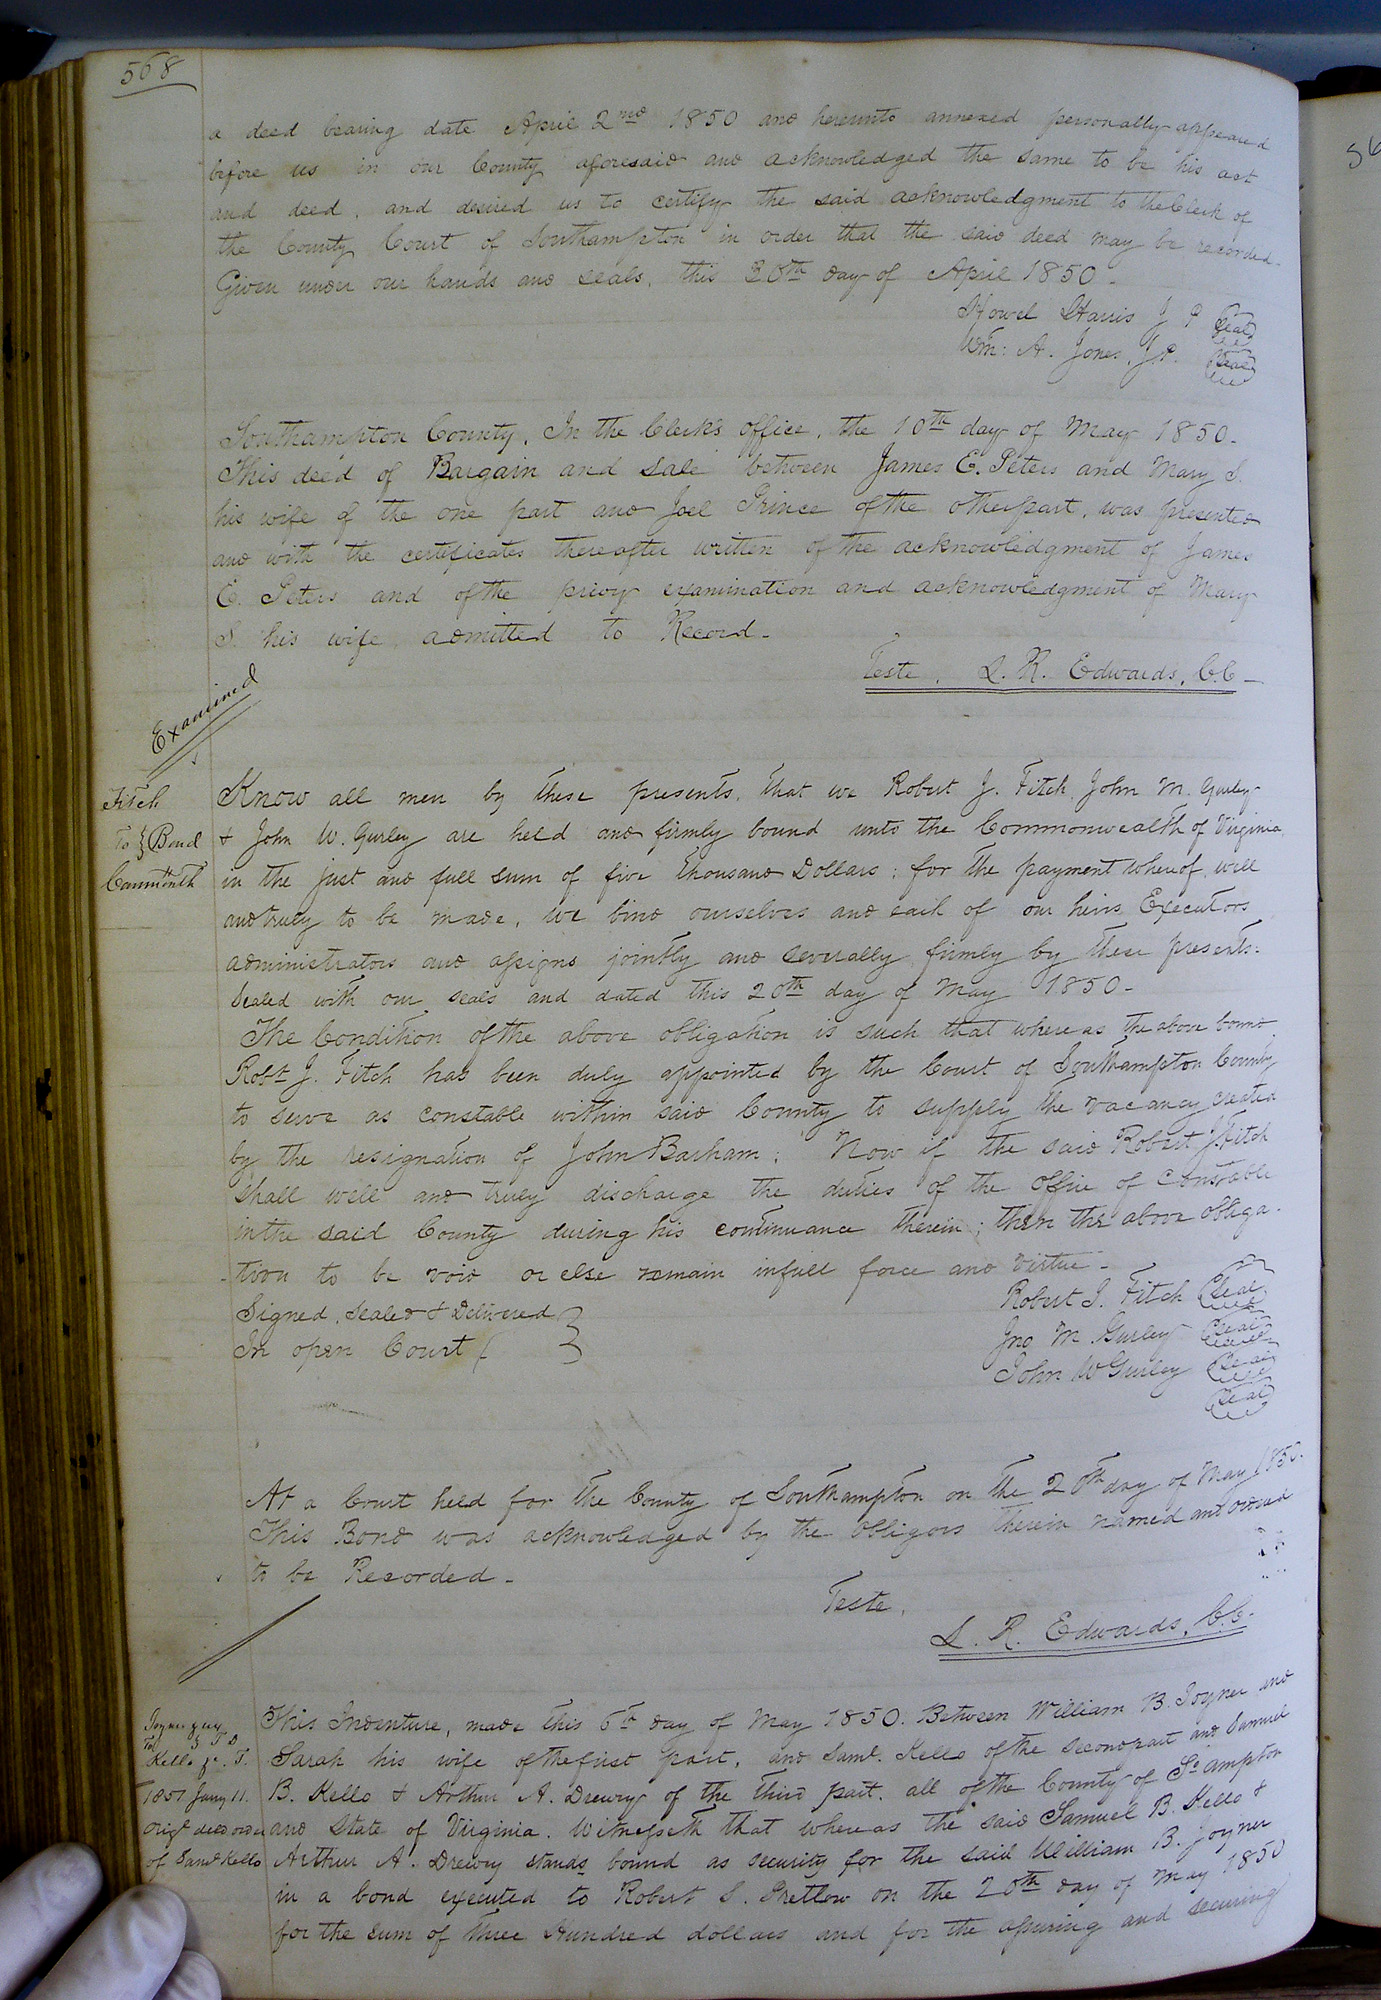 568
a deed bearing date April 2nd 1850 and hereunto annexed personally appeared
before us in our County aforesaid and acknowledged the same to be his act
and deed, and desired us to certify the said acknowledgment to the Clerk of
the County Court of Southampton in order that the said deed may be recorded.
Given under our hands and seals, this 30th day of April 1850.
Howel Harris J P Seal
Wm: A. Jones, J.P. Seal
Southampton County, In the Clerk's office, the 10th day of May 1850.
This deed of Bargain and sale between James E. Peters and Mary S.
his wife of the one part and Joel Prince of the other part, was presented
and with the certificates thereafter written of the acknowledgment of James
E. Peters and of the privy examination and acknowledgment of Mary
S. his wife admitted to Record.
Teste, L. R. Edwards, C.C
Examined
Fitch
To } Bond
Commonth
Know all men by these presents, that we Robert J. Fitch, John M. Gurley
& John W. Gurley are held and firmly bound unto the Commonwealth of Virginia
in the just and full sum of five thousand Dollars; for the payment whereof, well
and truly to be made, we bind ourselves and each of our heirs, Executors
administrators and assigns jointly and severally firmly by these presents.
Sealed with our seals and dated this 20th day of May 1850.
The Condition of the above obligation is such that whereas the above bound
Robt J. Fitch has been duly appointed by the Court of Southampton County
to serve as constable within said County to supply the vacancy created
by the resignation of John Barham; Now if the said Robert J Fitch
shall well and truly discharge the duties of the office of Constable
in the said County during his continuance therein; then the above obliga-
-tion to be void or else remain in full force and virtue.
Signed, sealed & Delivered }
In open Court
Robert J. Fitch Seal
Jno M. Gurley Seal
John W Gurley Seal
Seal
At a Court held for the County of Southampton on the 20th day of May 1850.
This Bond was acknowledged by the obligors therein named and ordered
to be Recorded.
Teste,
L. R. Edwards, C.C.
Joyner &
To } T D
Kello
1851 Jany 11.
Origl deed
of Saml Kello
This Indenture, made this 6th day of May 1850. Between William B. Joyner and
Sarah his wife of the first part, and Saml. Kello of the second part and Samuel
B. Kello & Arthur A. Drewry of the third part, all of the County of So ampton
and State of Virginia. Witnesseth that whereas the said Samuel B. Kello &
Arthur A. Drewry stands bound as security for the said William B. Joyner
in a bond executed to Robert S. Pretlow on the 20th day of May 1850
for the sum of three Hundred dollars and for the assuring and securing